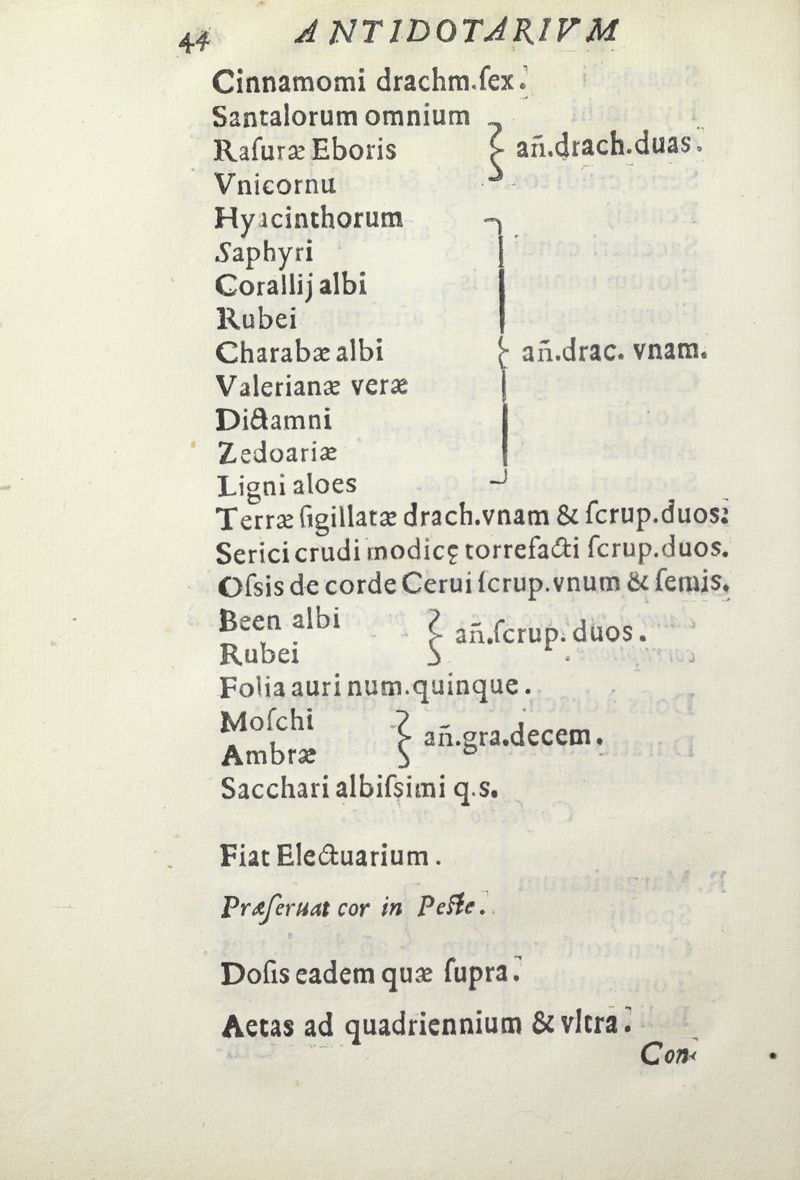 44 ANTIDOTARIVM
Cinnamomi drachm.ſex.
Santalorum omnium
Raſuræ Eboris } añ.drach.duas.
Vnicornu
Hyacinthorum
Saphyri
Corallij albi
Rubei
Charabæ albi } añ.drac. vnam.
Valerianæ veræ
Dictamni
Zedoariæ
Ligni aloes
Terræ ſigillatæ drach.vnam & ſcrup.duos.
Serici crudi modicę torrefacti ſcrup.duos.
Oſsis de corde Cerui ſcrup.vnum & ſemis.
Been albi
Rubei } añ.ſcrup.duos.
Folia auri num.quinque.
Moſchi
Ambræ } añ.gra.decem.
Sacchari albiſsimi q.s.
Fiat Electuarium.
Præſeruat cor in Peſte.
Doſis eadem quæ ſupra.
Aetas ad quadriennium & vltra.
Con-